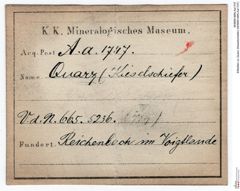 K. K. Mineralogisches Museum.
Acq. Post A.a. 1747.
Name Quarz (Kieselschiefer)
V.d.N. 665. 5236.
Fundort. Reichenbach im Voigtlande